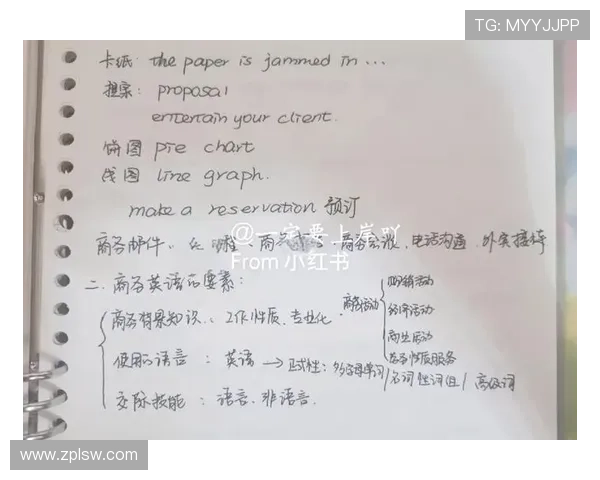 TG: MYYJJPP
卡纸: the paper is jammed in ...
提案: proposal
entertain your client.
饼图 pie chart
线图 line graph.
make a reservation 预订
@一定要上岸吖
From 小红书
商务邮件、 商务会议、电话沟通、外宾接待
二、商务英语的要素:
商务背景知识: 工作性质、专业化、商务活动
营销活动
经济活动
商业活动
服务
使用的语言: 英语 → 正式性: 单词/名词性词组/高级词
交际技能: 语言、非语言.
www.zplsw.com